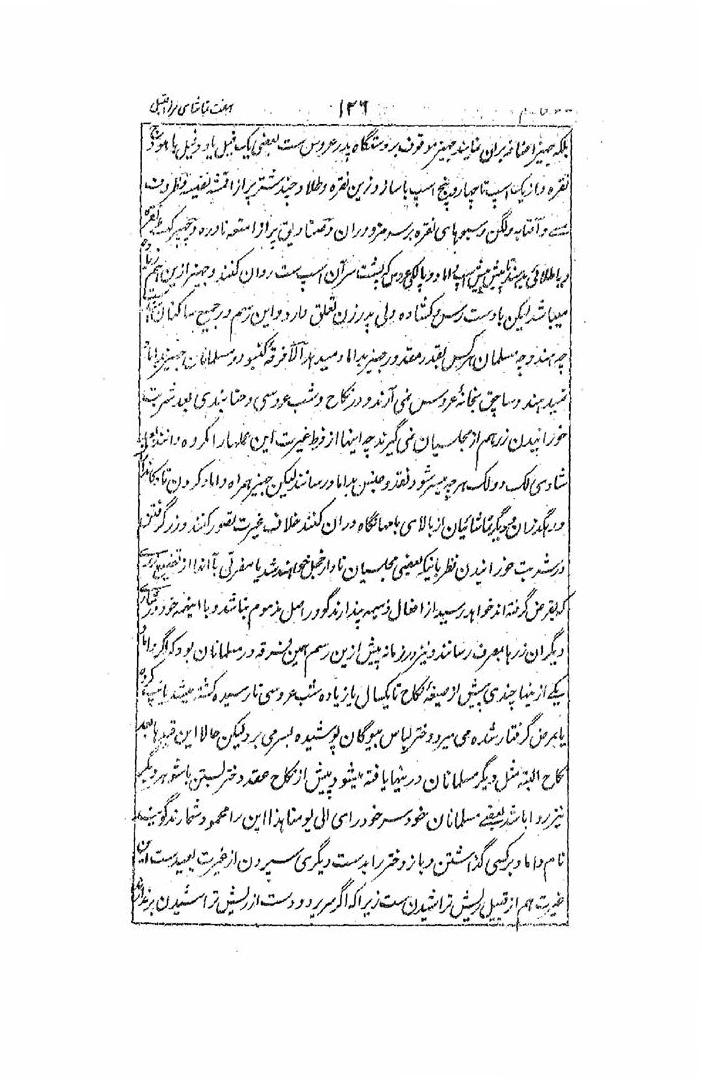 هفت تماشای مرزا قتیل ۱۲۶
بلکه جهیز اضافه بران نمایند جهیز موقوف بر دستگاه پدر عروس ست بعضی یک فیل یا دو فیل با هودج
نقره و از یک اسپ تا چهار و پنج اسپ با ساز و زین نقره و طلا و چند شتر پر از اقمشه نفیسه و ظروف
و آفتابه و لگن و سبوهای نقره بر سر مزدوران و صنادیق پر از امتعه نادره و چهپرکهٹ نقره
یا طلائی بدهند پیش پیش اسپ داماد و پالکی عروس که پشت سر آن اسپ ست روان کنند و جهیز ازین هم زیاده
میباشد لیکن با دست رس و کشاده دلی پدر زن تعلق دارد و این رسم در جمیع ساکنان
چه هندو چه مسلمان هر کس بقدر مقدور جهیز بداماد میدهد الا فرقه کنبو در مسلمانان جهیز بداماد
نمیدهند و ساچق بخانهٔ عروس نمی آرند و در نکاح و شب عروسی و حنابندی بعد شربت
خورانیدن زر هم از مجلسیان نمی گیرند چه اینها از فرط غیرت این عملها را مکروه دانند
شادی لک دو لک هر چه میسر شود نقد و جنس بداماد رسانند لیکن جهیز همراه داماد کردن تا بخانه
رهگذران و دیگر تماشائیان از بالای بامها نگاه دران کنند خلاف غیرت تصور کنند و زر گرفتن
در شربت خورانیدن نظر بانیکه بعضی مجلسیان نادار خجل خواهند شد یا مضرتی بآنها از
که بقرض گرفته اند خواهد رسید از افعال ذمیمه پندارند گو در اصل مذموم نباشد و با اینهمه خود در شادی
دیگران زرها بمصرف رسانند و نیز در زمانه پیش ازین رسم همین فرقه در مسلمانان بود که اگر داماد
یکی از اینها چندی پیش از صیغهٔ نکاح تا یکسال یا زیاده شب عروسی نارسیده کشته میشد یا
یا بمرض گرفتار شده می مرد دختر لباس بیوگان پوشیده بسر می برد لیکن حالا این قیدها بعد
نکاح البته مثل دیگر مسلمانان در اینها یافته میشود پیش از نکاح عقد دختر بستن با شوهر دیگر
نیز روا باشد بعضی مسلمانان خود سر خود رای الی یومنا هذا این را محمود شمارند گویند
نام داماد بر کسی گذاشتن و باز دختر را بدست دیگری سپردن از غیرت بعید ست این
غیرت هم از قبیل ریش تراشیدن ست زیرا که اگر سر برود دست از ریش تراشیدن برندارند